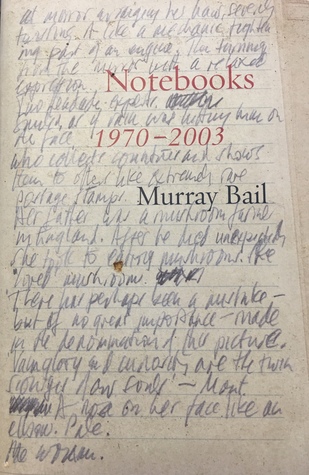 at mirror arranging her hair, severely
It is like a mechanic tighten
ing part of an engine, then turning
from the mirror with a relaxed
expression.
Notebooks
as if rain was hitting him on
the face
1970–2003
who collects countries and shows
them to others like extremely rare
postage stamps.
Murray Bail
Her father was a mushroom farmer
in England. After he died unexpectedly
she took to eating mushrooms. She
loved mushrooms.
There has perhaps been a mistake –
but of no great importance – made
in the denomination of this picture.
Vainglory and curiosity are the twin
scourges of our souls – Mont.
A nose on her face like an
elbow. Pale.
the woman.